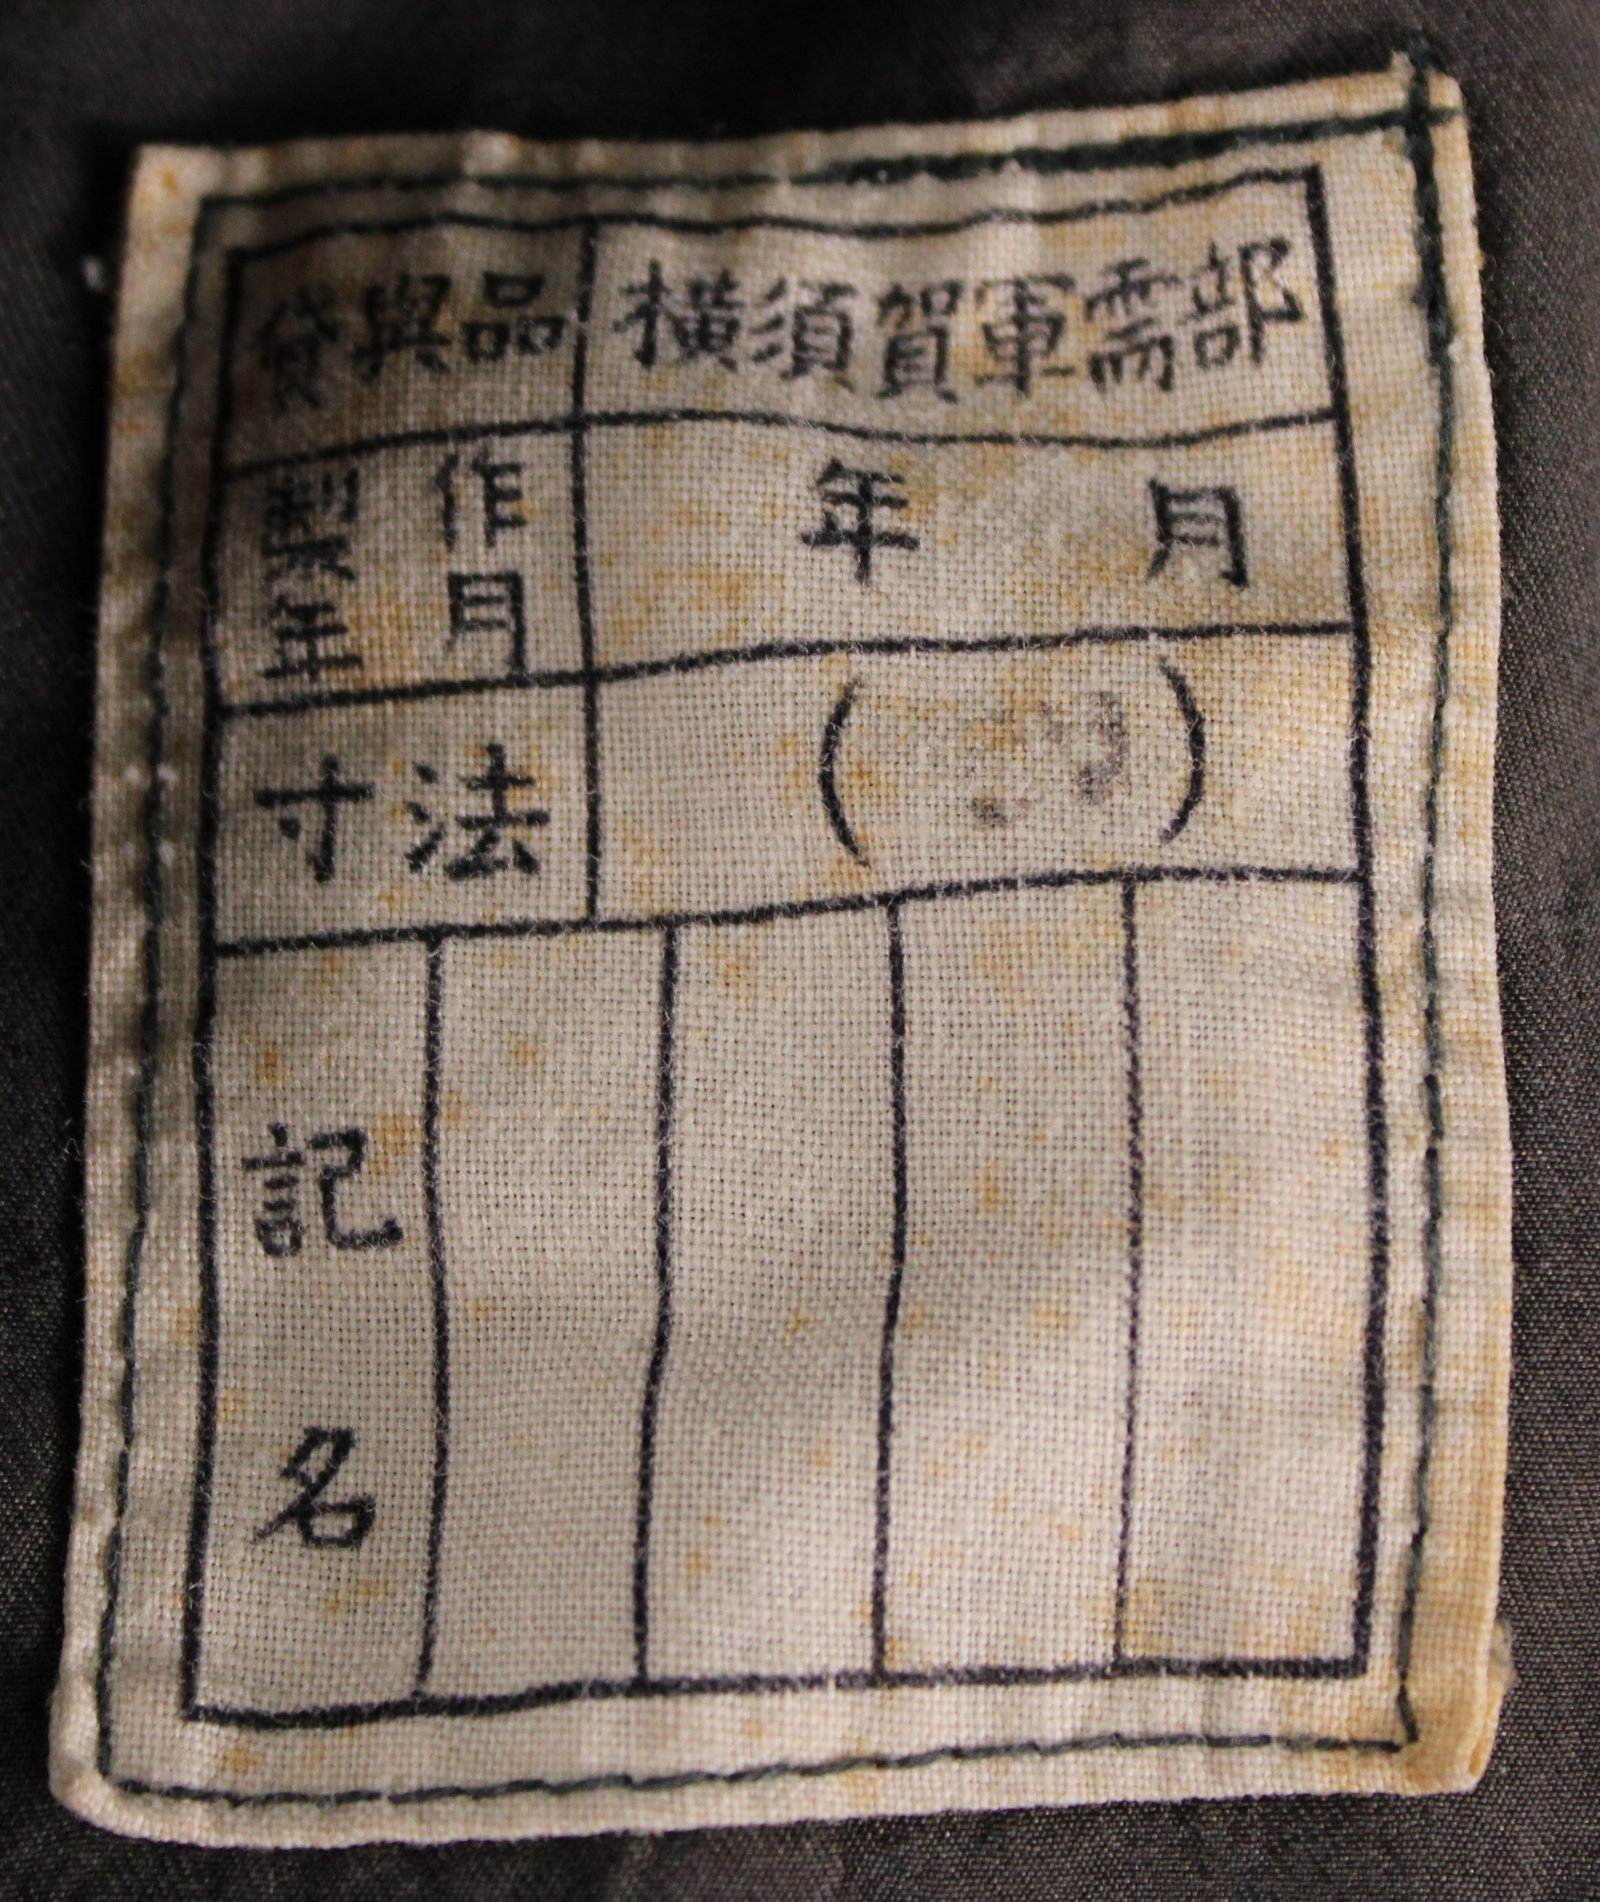 貸與品 横須賀軍需部
製作
年月
年 月
寸法 ( )
記名